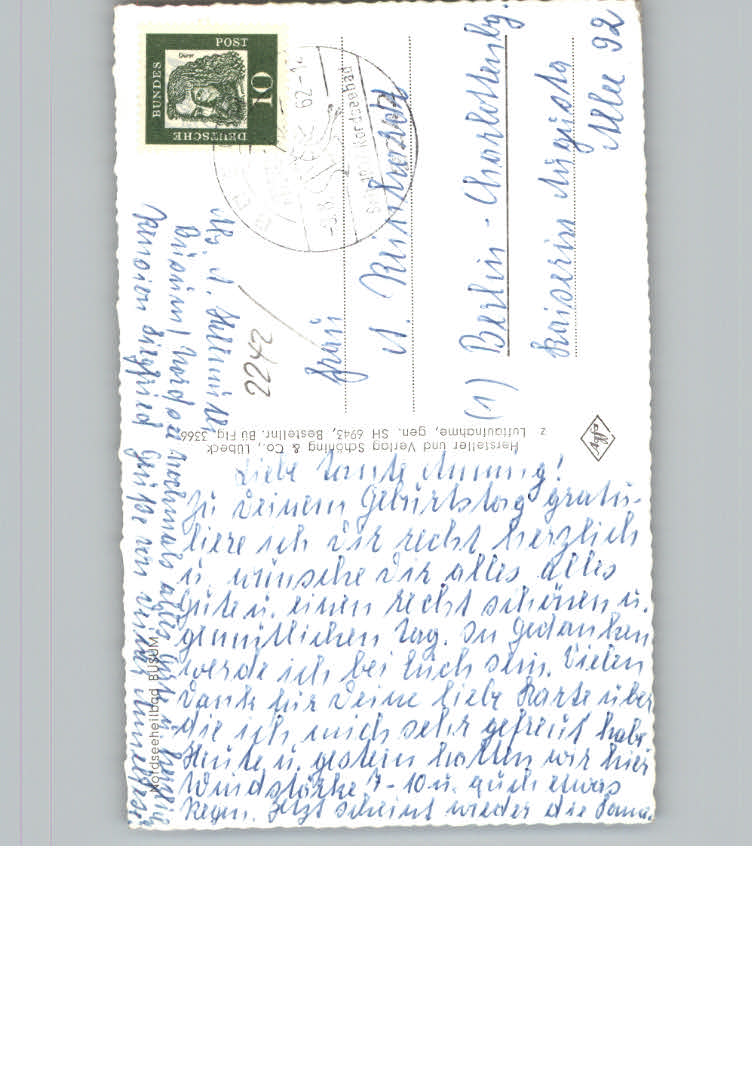 Liebe Tante Anning!
Zu Deinem Geburtstag gratu-
liere ich Dir recht herzlich
u. wünsche Dir alles alles
Gute u. einen recht schönen u.
gemütlichen Tag. In Gedanken
werde ich bei Euch sein. Vielen
Dank für Deine liebe Karte über
die ich mich sehr gefreut habe.
Heute u. gestern hatten wir hier
Windstärke 7-10 u. auch etwas
Regen. Jetzt scheint wieder die Sonne.
Nochmals alles Gute u.
Grüße von Deiner Anneliese
Abs. A.
Büsum / Nordsee
2242
Frau
A.
(1) Berlin-Charlottenbg.
Kaiserin Augusta
Allee 92
DEUTSCHE
BUNDES
POST
10
Dürer
Nordseeheilbad
Hersteller und Verlag Schöning & Co., Lübeck
z Luftaufnahme, gen. SH 6943, Bestellnr. Bü Flg. 3366
Nordseeheilbad BÜSUM